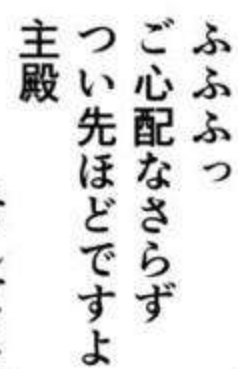 ふふふっ
ご心配なさらず
つい先ほどですよ
主殿